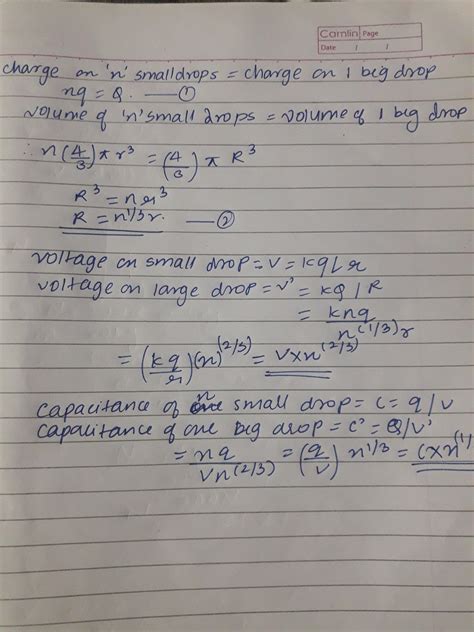 Camlin Page
Date / /
charge on 'n' smalldrops = charge on 1 big drop
nq = Q. —— ①
volume of 'n' small drops = volume of 1 big drop
∴ n(4/3)π r³ = (4/3) π R³
R³ = n r³
R = n^1/3 r. —— ②
voltage on small drop = v = kq/r
voltage on large drop = v' = kQ / R
= knq / n^(1/3) r
= (kq/r)(n)^(2/3) = V×n^(2/3)
capacitance of n small drop = c = q/v
capacitance of one big drop = c' = Q/v'
= nq / Vn^(2/3) = (q/v) n^1/3 = C×n^(1/